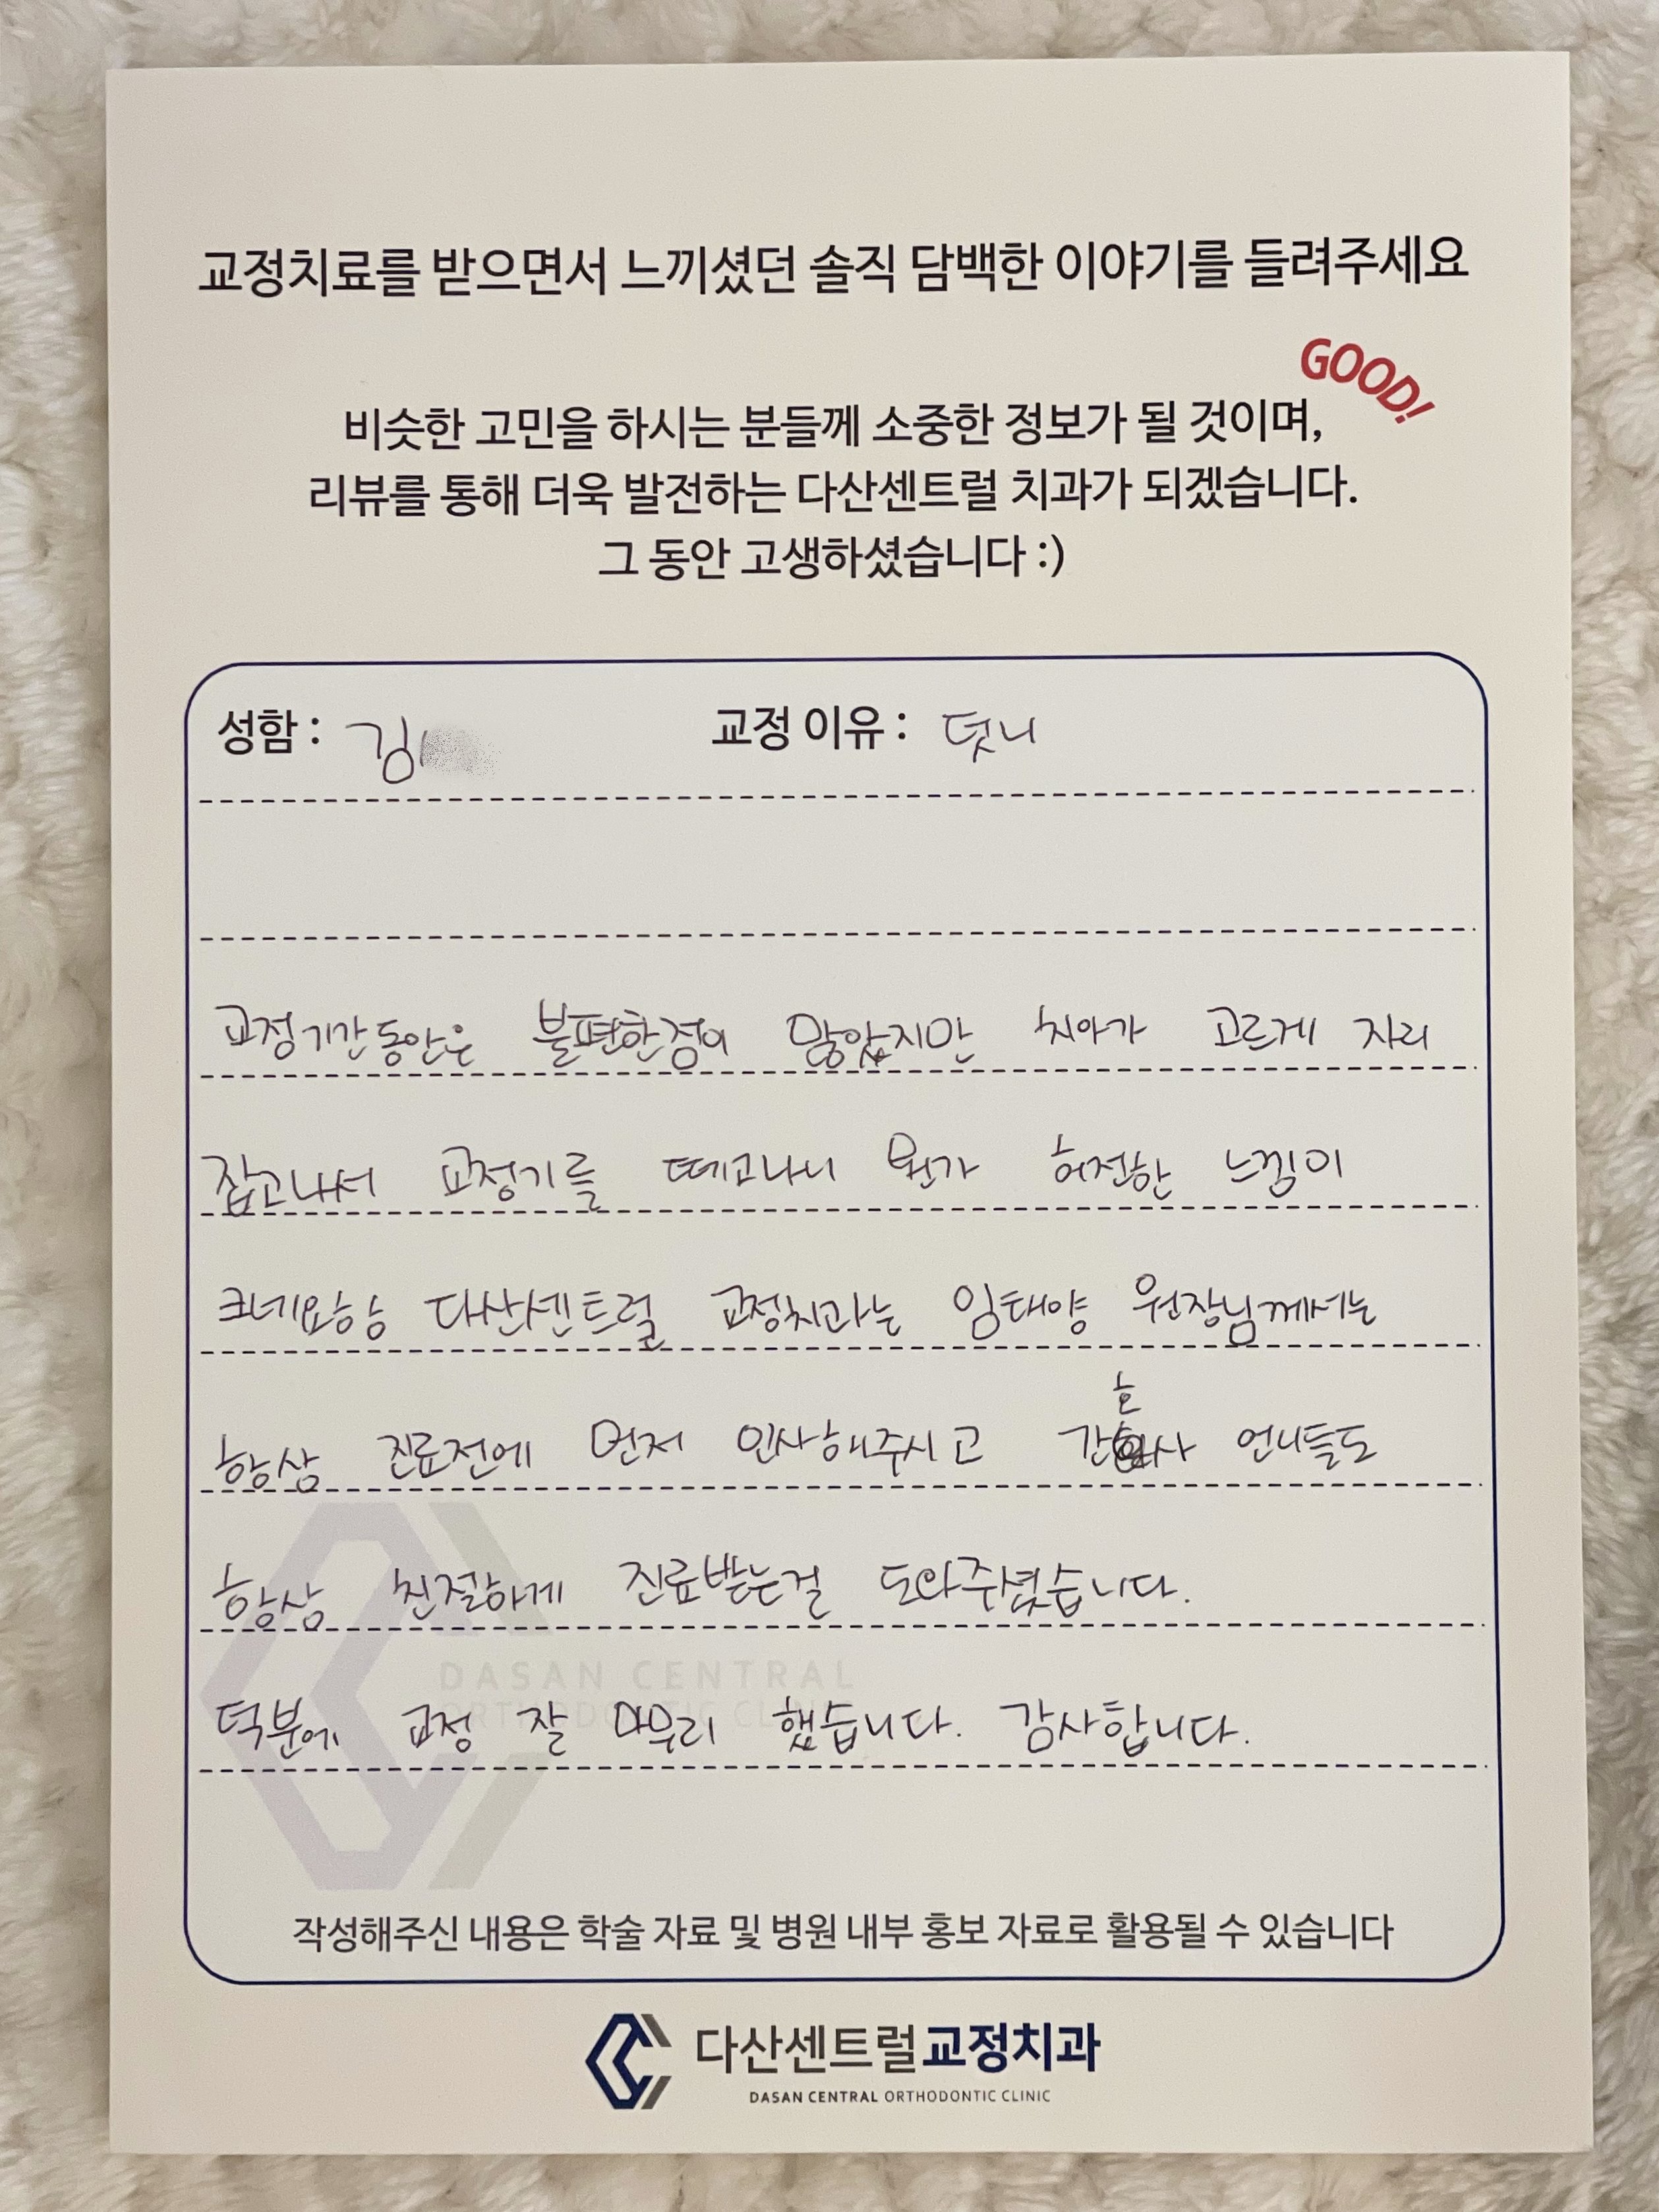 교정치료를 받으면서 느끼셨던 솔직 담백한 이야기를 들려주세요
GOOD!
비슷한 고민을 하시는 분들께 소중한 정보가 될 것이며,
리뷰를 통해 더욱 발전하는 다산센트럴 치과가 되겠습니다.
그 동안 고생하셨습니다 :)
성함 : 김 교정 이유 : 덧니
교정기간동안은 불편한점이 많았지만 치아가 고르게 자리
잡고나서 교정기를 떼고나니 뭔가 허전한 느낌이
크네요항상 다산센트럴 교정치과는 임태양 원장님께서는
항상 진료전에 먼저 인사해주시고 간호사 언니들도
항상 친절하게 진료받는걸 도와주셨습니다.
DASAN CENTRAL
ORTHODONTIC CLINIC
덕분에 교정 잘 마무리 했습니다. 감사합니다.
작성해주신 내용은 학술 자료 및 병원 내부 홍보 자료로 활용될 수 있습니다
다산센트럴교정치과
DASAN CENTRAL ORTHODONTIC CLINIC